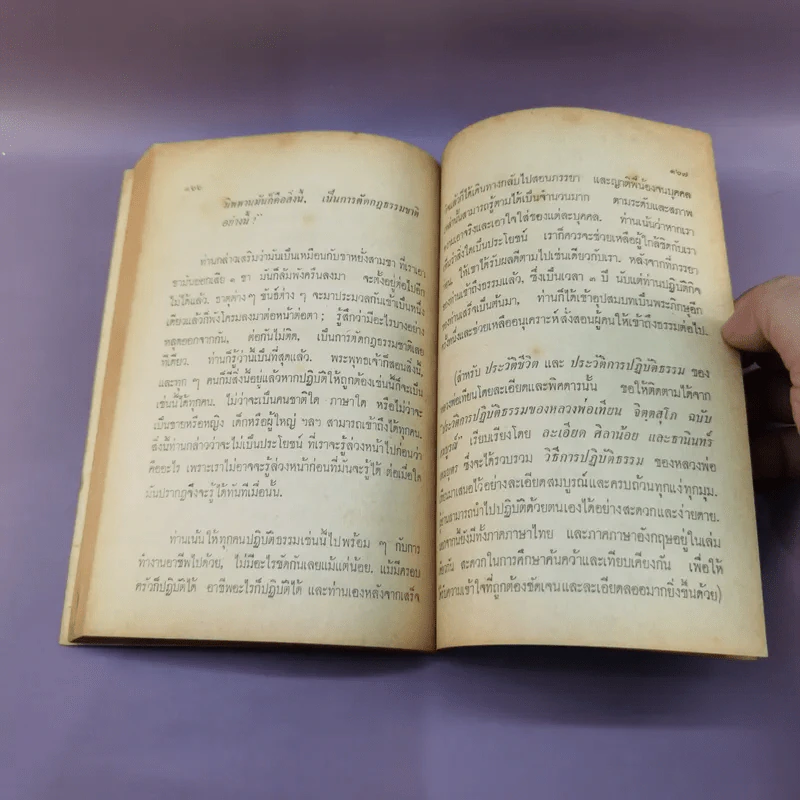 ๑๖๖
ติดตามมันก็คือสิ่งนี้, เป็นการตัดกฎธรรมชาติ
อย่างนี้!"
ท่านกล่าวเสริมว่ามันเป็นเหมือนกับขาหยั่งสามขา ที่เราเอา
ขามันออกเสีย ๑ ขา มันก็ล้มพังครืนลงมา จะตั้งอยู่ต่อไปอีก
ไม่ได้แล้ว. ธาตุต่าง ๆ ขันธ์ต่าง ๆ จะมาประมวลกันเข้าเป็นหนึ่ง
เดียวแล้วก็พังโครมลงมาต่อหน้าต่อตา; รู้สึกว่ามีอะไรบางอย่าง
หลุดออกจากกัน, ต่อกันไม่ติด, เป็นการตัดกฎธรรมชาติเลย
ทีเดียว. ท่านก็รู้ว่านี้เป็นที่สุดแล้ว. พระพุทธเจ้าก็สอนสิ่งนี้,
และทุก ๆ คนก็มีสิ่งนี้อยู่แล้วหากปฏิบัติให้ถูกต้องเช่นนี้ก็จะเป็น
เช่นนี้ได้ทุกคน. ไม่ว่าจะเป็นคนชาติใด ภาษาใด หรือไม่ว่าจะ
เป็นชายหรือหญิง เด็กหรือผู้ใหญ่ ฯลฯ สามารถเข้าถึงได้ทุกคน.
สิ่งนี้ท่านกล่าวว่าจะไม่เป็นประโยชน์ ที่เราจะรู้ล่วงหน้าไปก่อนว่า
คืออะไร เพราะเราไม่อาจจะรู้ล่วงหน้าก่อนที่มันจะรู้ได้ ต่อเมื่อใด
มันปรากฏจึงจะรู้ได้ทันทีเมื่อนั้น.
ท่านเน้นให้ทุกคนปฏิบัติธรรมเช่นนี้ไปพร้อม ๆ กับการ
ทำงานอาชีพไปด้วย, ไม่มีอะไรขัดกันเลยแม้แต่น้อย. แม้มีครอบ
ครัวก็ปฏิบัติได้ อาชีพอะไรก็ปฏิบัติได้ และท่านเองหลังจากเสร็จ
๑๖๗
แล้วก็ได้เดินทางกลับไปสอนภรรยา และญาติพี่น้องจนบุคคล
เหล่านั้นสามารถรู้ตามได้เป็นจำนวนมาก ตามระดับและสภาพ
ความเอาจริงและเอาใจใส่ของแต่ละบุคคล. ท่านเน้นว่าหากเรา
สิ่งใดเป็นประโยชน์ เราก็ควรจะช่วยเหลือผู้ใกล้ชิดกับเรา
ให้เขาได้รับผลดีตามไปเช่นเดียวกับเรา. หลังจากที่ภรรยา
ท่านเข้าถึงธรรมแล้ว, ซึ่งเป็นเวลา ๓ ปี นับแต่ท่านปฏิบัติกิจ
ท่านเสร็จเป็นต้นมา, ท่านก็ได้เข้าอุปสมบทเป็นพระภิกษุอีก
ครั้งหนึ่งและช่วยเหลืออนุเคราะห์สั่งสอนผู้คนให้เข้าถึงธรรมต่อไป.
(สำหรับ ประวัติชีวิต และ ประวัติการปฏิบัติธรรม ของ
หลวงพ่อเทียนโดยละเอียดและพิสดารนั้น ขอให้ติดตามได้จาก
"ประวัติการปฏิบัติธรรมของหลวงพ่อเทียน จิตฺตสุโภ ฉบับ
สมบูรณ์" เรียบเรียงโดย ละเอียด ศิลาน้อย และธานินทร์
ซึ่งจะได้รวบรวม วิธีการปฏิบัติธรรม ของหลวงพ่อ
เทียนมาเสนอไว้อย่างละเอียดสมบูรณ์และครบถ้วนทุกแง่ทุกมุม,
ผู้อ่านสามารถนำไปปฏิบัติด้วยตนเองได้อย่างสะดวกและง่ายดาย.
นอกจากนี้ยังมีทั้งภาคภาษาไทย และภาคภาษาอังกฤษอยู่ในเล่ม
เดียวกัน สะดวกในการศึกษาค้นคว้าและเทียบเคียงกัน เพื่อให้
ได้รับความเข้าใจที่ถูกต้องชัดเจนและละเอียดลออมากยิ่งขึ้นด้วย)